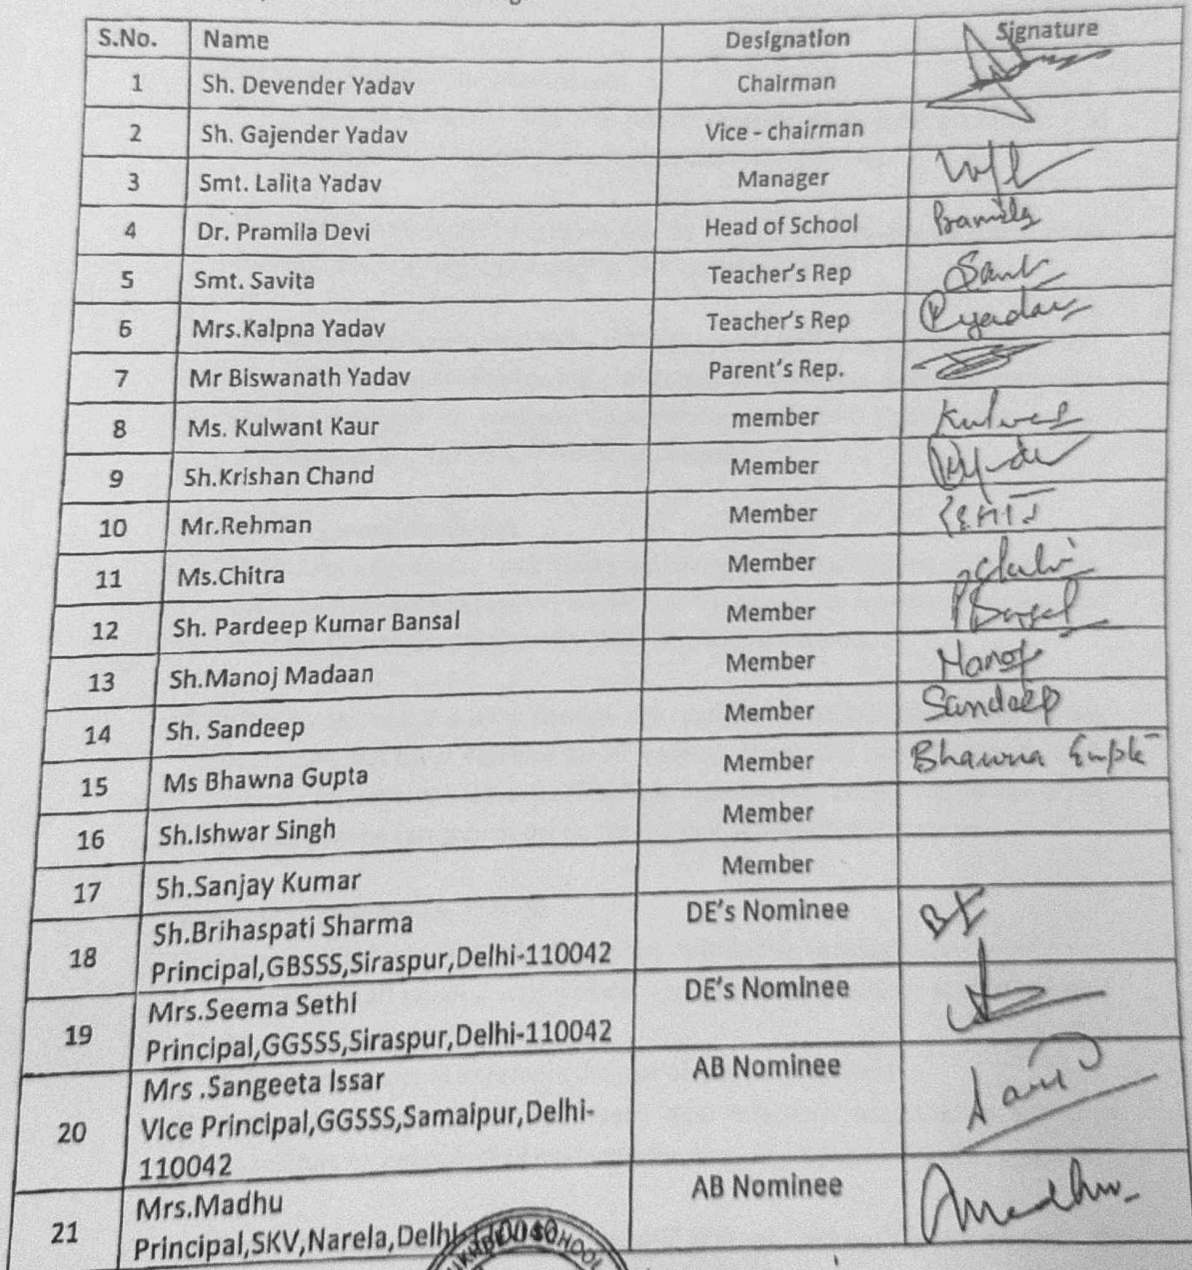 S.No. Name Designation Signature
1 Sh. Devender Yadav Chairman
2 Sh. Gajender Yadav Vice - chairman
3 Smt. Lalita Yadav Manager
4 Dr. Pramila Devi Head of School Pramila
5 Smt. Savita Teacher's Rep
6 Mrs.Kalpna Yadav Teacher's Rep Kyadav
7 Mr Biswanath Yadav Parent's Rep.
8 Ms. Kulwant Kaur member
9 Sh.Krishan Chand Member
10 Mr.Rehman Member
11 Ms.Chitra Member
12 Sh. Pardeep Kumar Bansal Member
13 Sh.Manoj Madaan Member Manoj
14 Sh. Sandeep Member Sandeep
15 Ms Bhawna Gupta Member Bhawna Gupta
16 Sh.Ishwar Singh Member
17 Sh.Sanjay Kumar Member
18 Sh.Brihaspati Sharma DE's Nominee
Principal,GBSSS,Siraspur,Delhi-110042
19 Mrs.Seema Sethi DE's Nominee
Principal,GGSSS,Siraspur,Delhi-110042
20 Mrs .Sangeeta Issar AB Nominee
Vice Principal,GGSSS,Samaipur,Delhi-
110042
21 Mrs.Madhu AB Nominee Madhu
Principal,SKV,Narela,Delhi-110040
SCHOOL